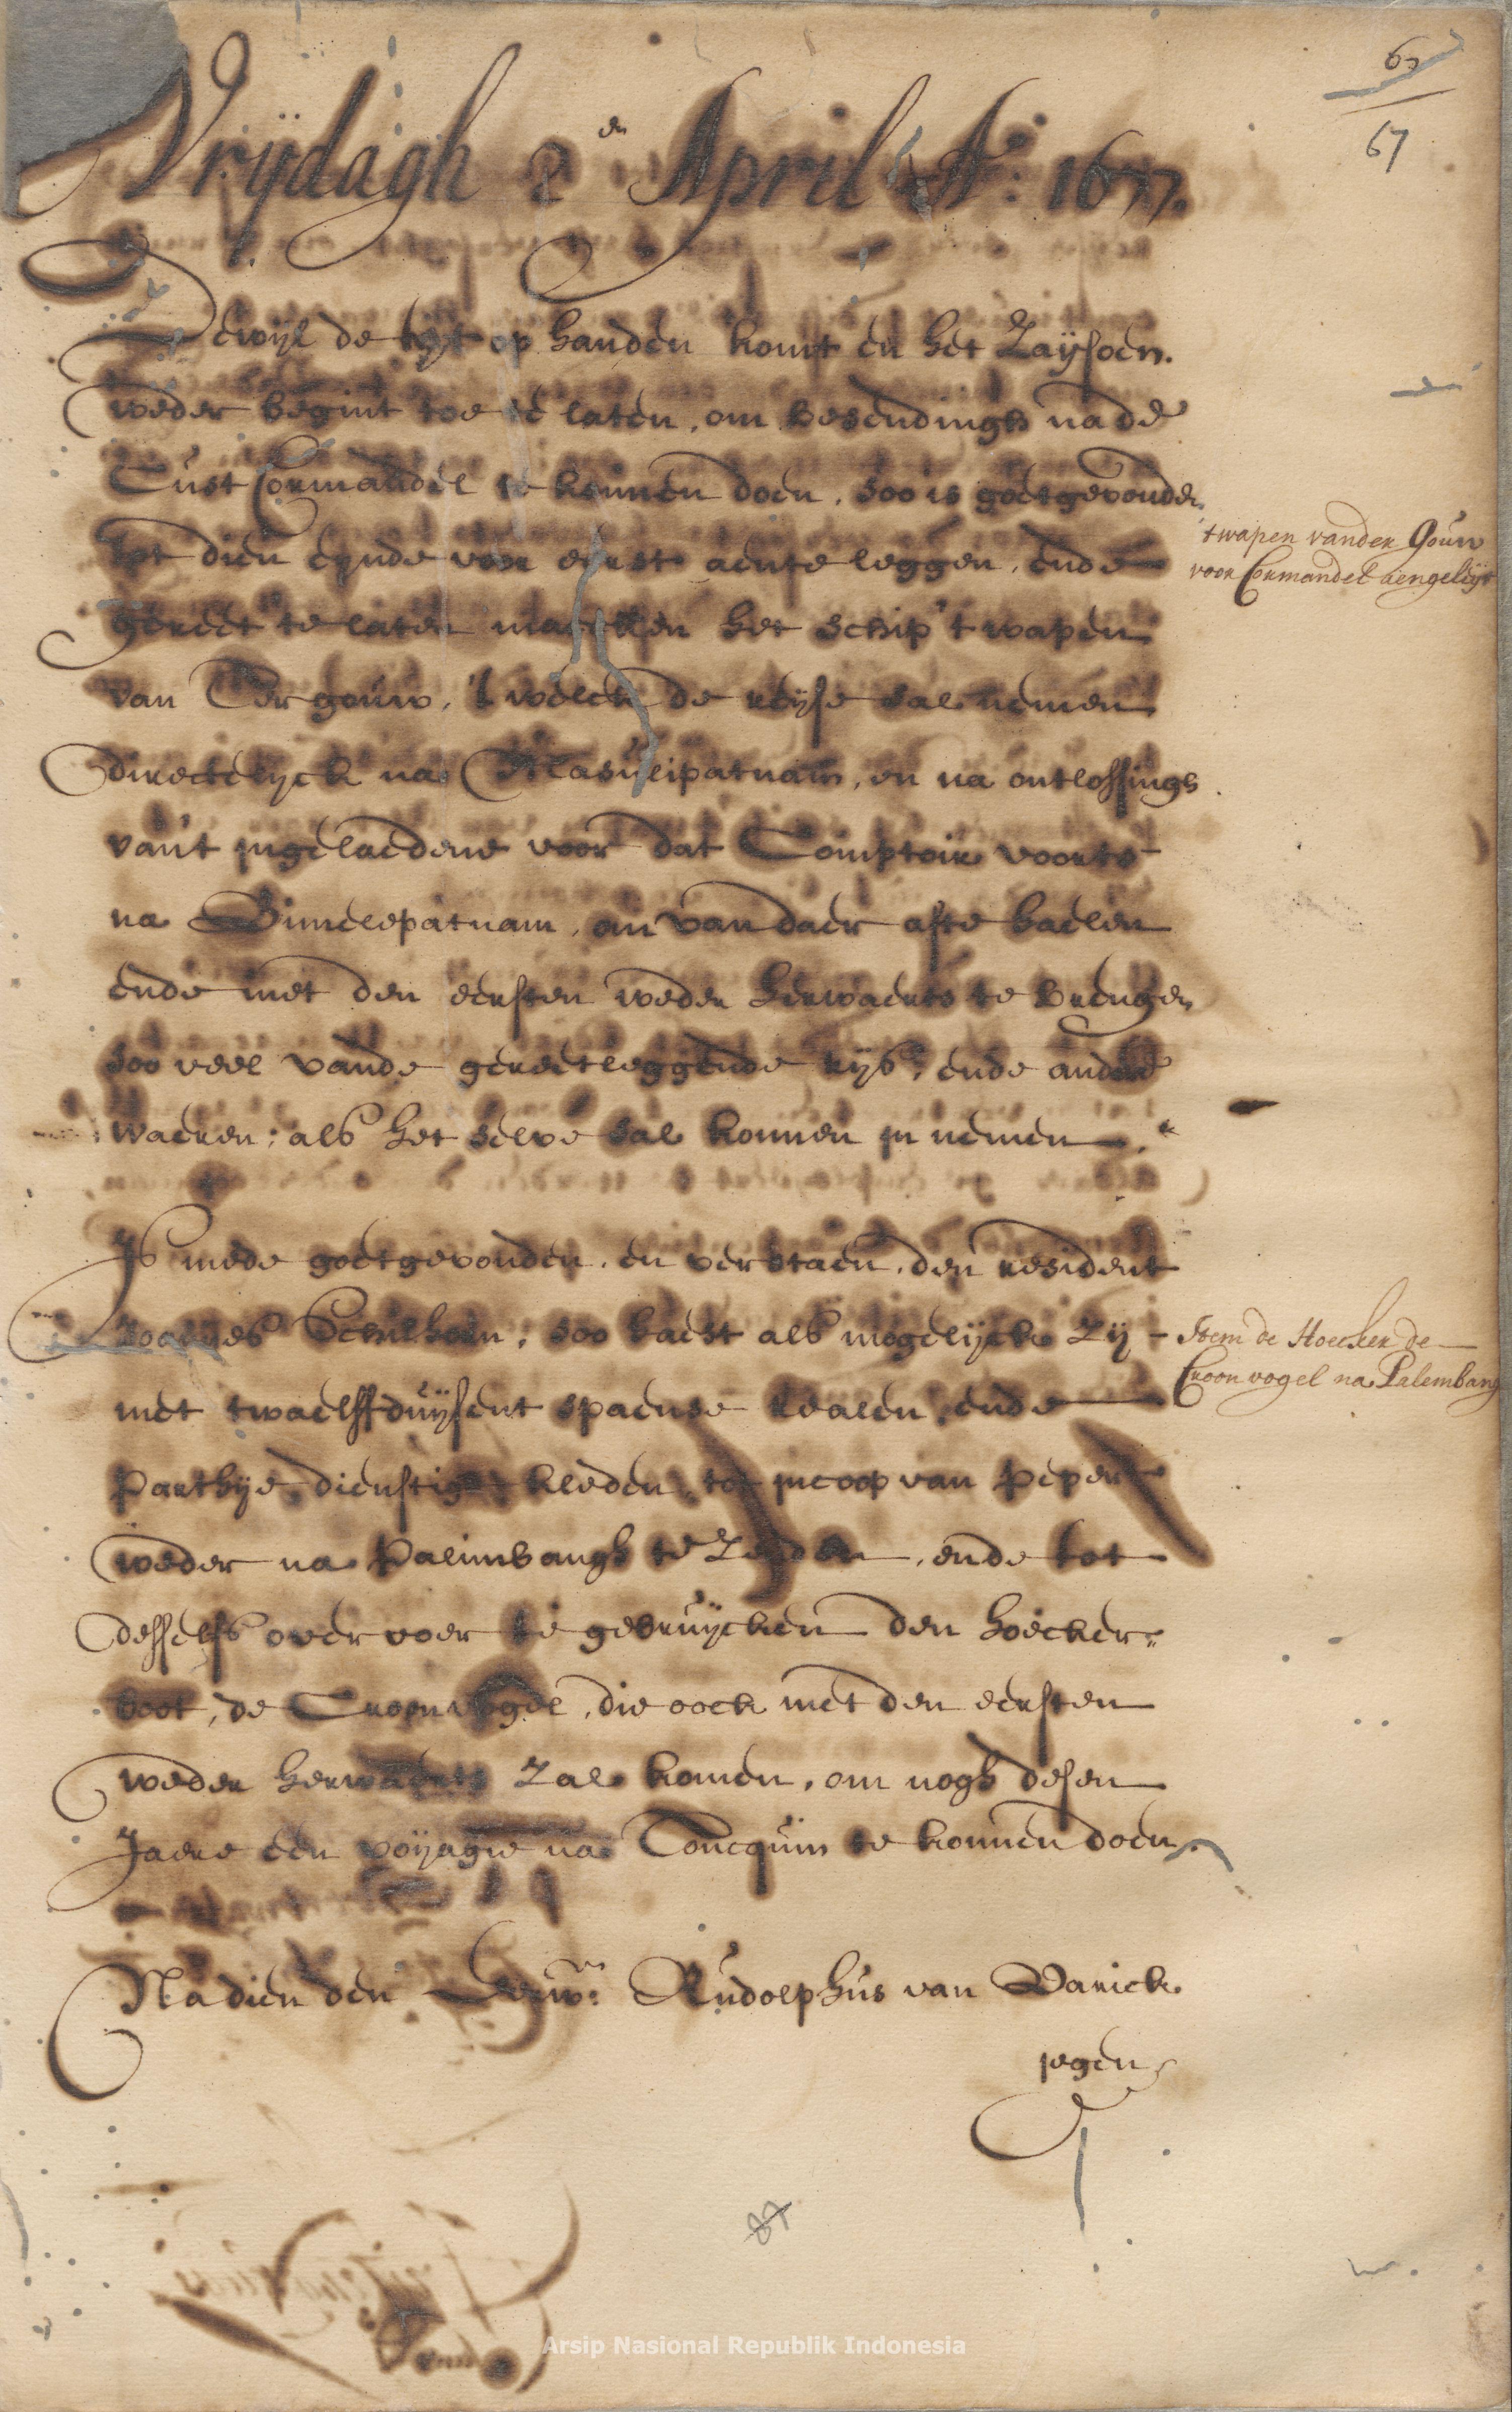 67
Vrijdagh 2en April Ao: 1677.
Dewijl de tijt op handen komt en het Zaijsoen.
weder begint toe te laten, om besendingh na de
Cust Cormandel te konnen doen, soo is goetgevonden
tot dien eynde voor eerst aente leggen, ende
gereet te laten maecken het schip 't wapen
van der gouw, 't welck de reijse sal nemen
directelyck na Masulipatnam, en na ontlossingh
van't ingelaedene voor dat Comptoir voorts
na Bimelepatnam, om van daer afte haelen
ende met den eersten weder herwaerts te brengen
soo veel vande gereetleggende rijs, ende andere
waeren; als het selve sal konnen in nemen.
't wapen vander Gouw
voor Cormandel aengeleijt
Is mede goetgevonden, en verstaen, den resident
Joannes Schilhorn, soo haest als mogelijck Zij
met twaelffduijsent spaense realen, ende
Parthije dienstige kleden, tot incoop van Peper
weder na Palimbangh te Zenden, ende tot
desselfs overvoer te gebruijcken den hoecker-
boot, de Croonvogel, die oock met den eersten
weder herwaerts Zal komen, om nogh desen
Jaere een voijagie na Toncquin te konnen doen.
Item de Hoecker de
Croonvogel na Palembang
Nadien den Eerw: Rudolphus van Varick
jegen
87
Arsip Nasional Republik Indonesia